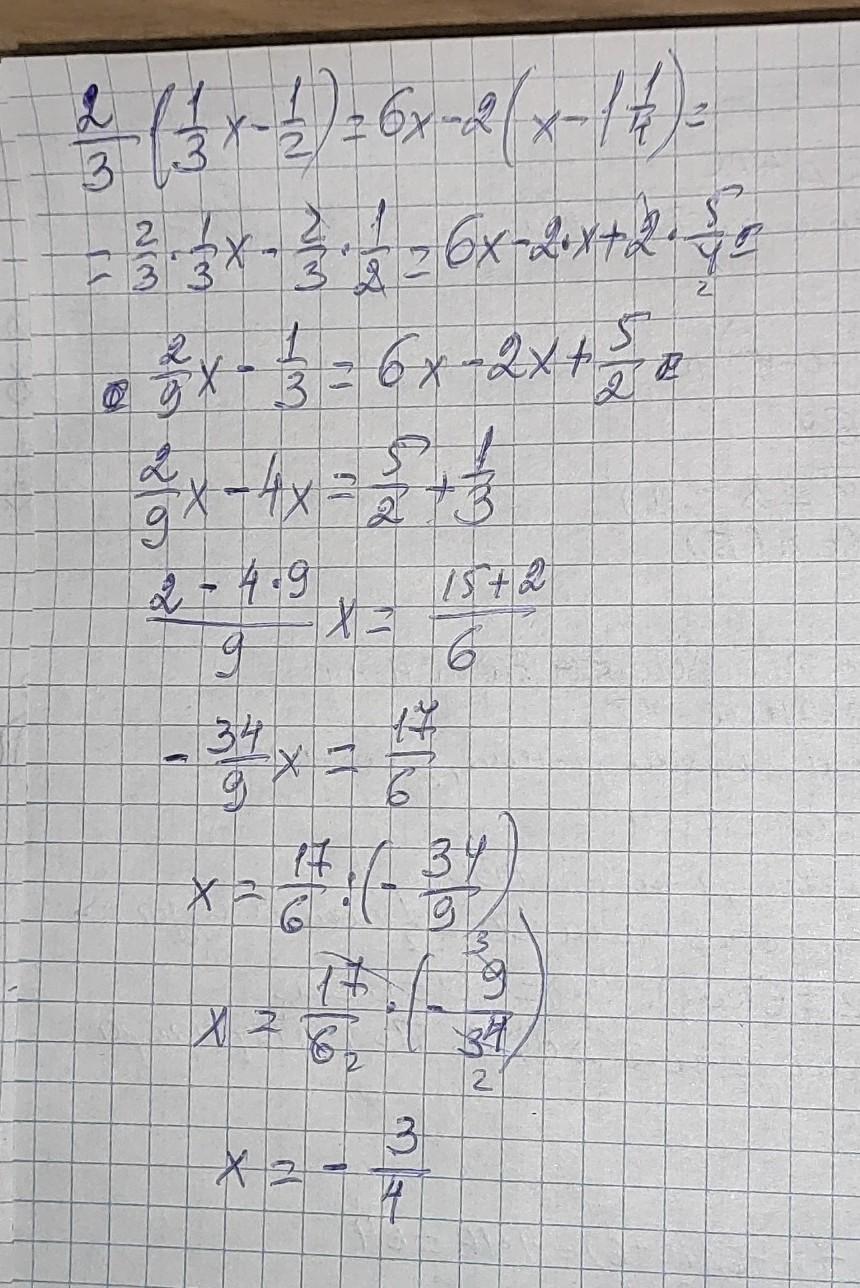 2/3 (1/3 x - 1/2) = 6x - 2(x - 1 1/4) =
= 2/3 · 1/3 x - 2/3 · 1/2 = 6x - 2·x + 2 · 5/4 2 =
2/9 x - 1/3 = 6x - 2x + 5/2 =
2/9 x - 4x = 5/2 + 1/3
(2 - 4·9)/9 x = (15+2)/6
- 34/9 x = 17/6
x = 17/6 : (- 34/9)
x = 17/6 2 · (- 3 9/34 2)
x = - 3/4